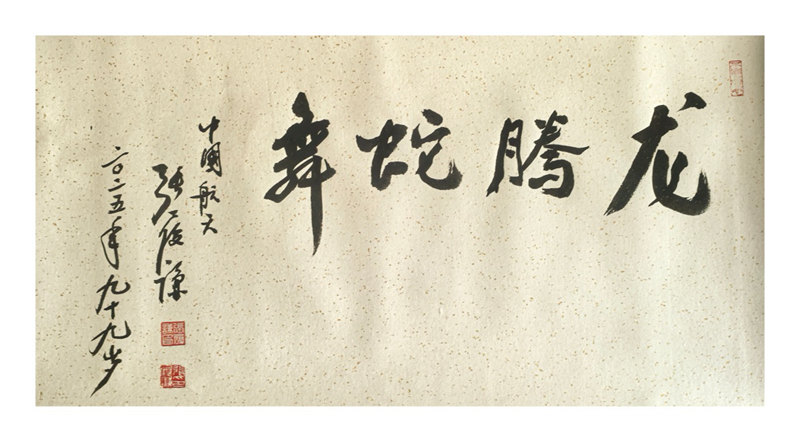 龙腾蛇舞
中國航天
二〇二五年九十九岁